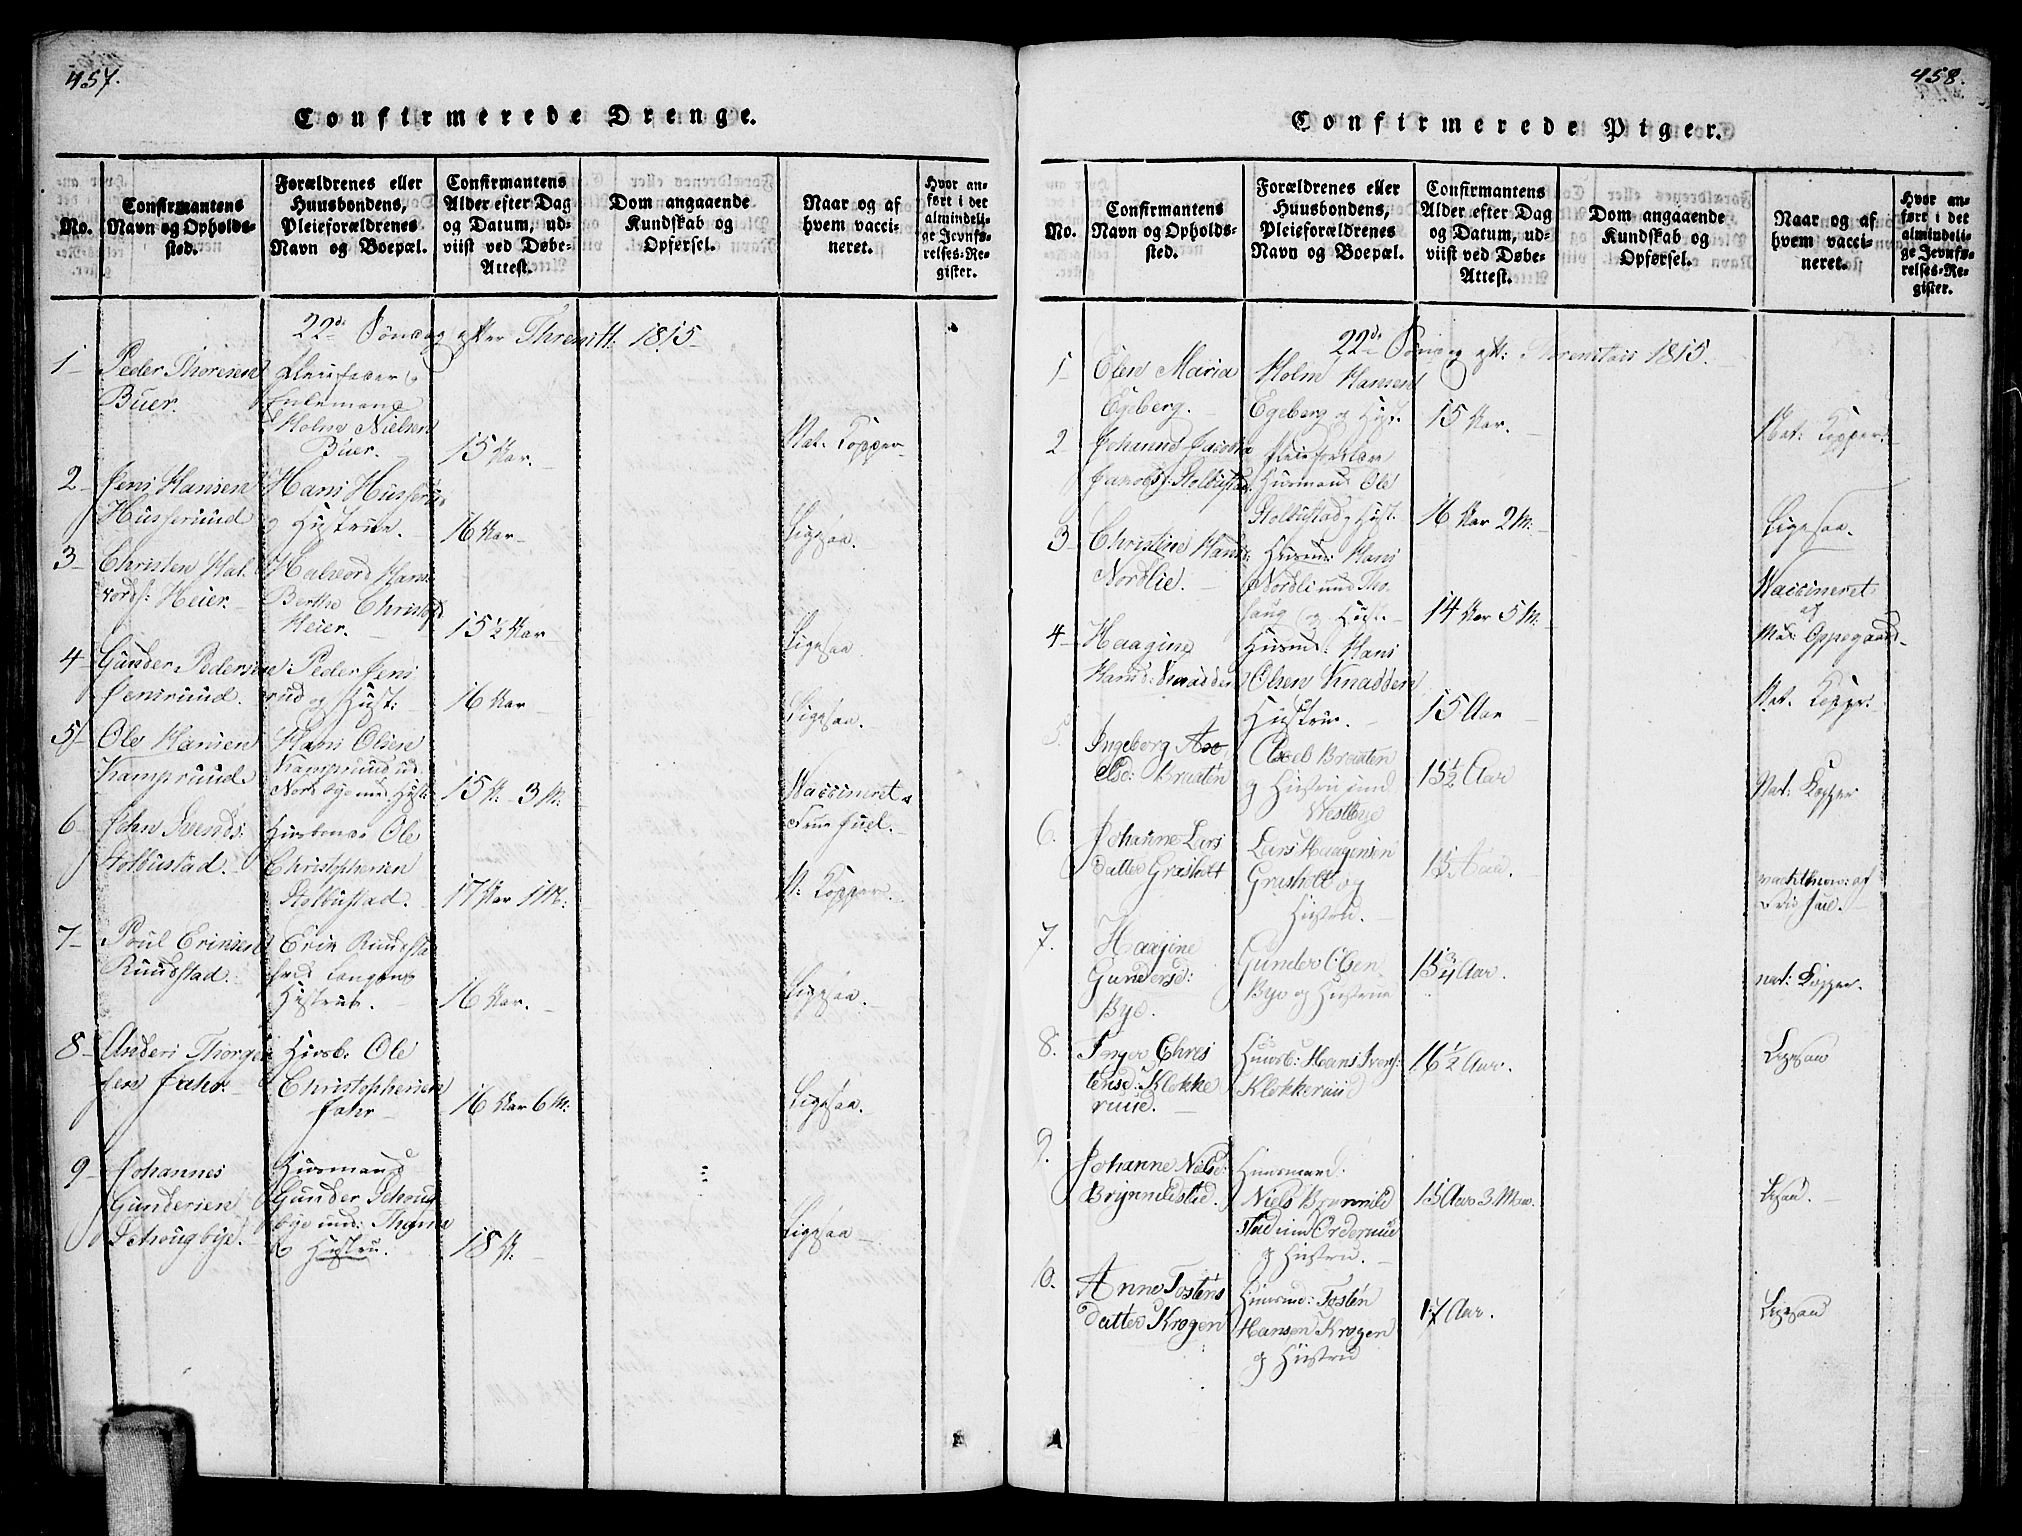 457.
Confirmerede Drenge.
No.
Confirmantens
Navn og Opholds-
sted.
Forældrenes eller
Huusbondens,
Pleieforældrenes
Navn og Boepæl.
Confirmantens
Alder efter Dag
og Datum, ud-
viist ved Døbe-
Attest.
Dom angaaende
Kundskab og
Opførsel.
Naar og af
hvem vacci-
neret.
Hvor an-
ført i det
almindeli-
ge Jevnfø-
relses-Re-
gister.
22de Søndag efter Threnitt: 1815
1 Peder Thoresen
Buer.
Pleiefader
Enkemand
Holm Nielsen
Buer.
15 Aar.
Nat. Kopper
2 Jens Hansen
Husserund
Hans Husserud
og Hustrue.
16 Aar
Ligesaa.
3 Christen Hal
vords: Heier
Halvord Hans
Berthe Christofs
Heier.
15 1/2 Aar
Ligesaa
4 Gunder Pedersen
Jensruud.
Peder Jens
rud og Hust:
16 Aar
Ligesaa.
5 Ole Hansen
Kampruud
Hans Olsen
Kampruud ud.
Nordbye med Hust:
15 A: 3 M:
Vaccineret
Frue Juel.
6 John Svends:
Stolbustad.
Huusbonde Ole
Christophersen
Stolbustad.
17 Aar 1 M:
N: Kopper
7 Poul Ericksen
Ruudstad.
Erik Ruudsta
Hustrue.
16 Aar.
Ligesaa.
8 Anders Thorge
sen Jahr.
Huusb: Ole
Christophersen
Jahr
16 Aar 6 M:
Ligesaa.
9 Johannes
Gundersen
Schougbye.
Huusmand
Gunder Schoug
bye und: Thom
& Hustru.
18 A:
Ligesaa
458.
Confirmerede Piger.
No.
Confirmantens
Navn og Opholds-
sted.
Forældrenes eller
Huusbondens,
Pleieforældrenes
Navn og Boepæl.
Confirmantens
Alder efter Dag
og Datum, ud-
viist ved Døbe-
Attest.
Dom angaaende
Kundskab og
Opførsel.
Naar og af
hvem vacci-
neret.
Hvor an-
ført i det
almindeli-
ge Jevnfø-
relses-Re-
gister.
22de Søndag eft: Threnitais 1815.
1 Elen Maria
Egeberg.
Holm Hansen
Egeberg og Hust.
15 Aar.
Nat: Kopper.
2 Johanne Jacobin
Jacobs: Stolbustad
Pleieforældre
Huusmand Ole
Stolbustad og Hust.
16 Aar 2 M.
Ligesaa.
3 Christine Hans:
Nordlie.
Huusmd: Hans
Nordli und
og Hust:
14 Aar 5 M.
Vaccineret
af
Mad: Oppegaard
4 Haagine
Hansd: Knadden
Huusmd: Hans
Olsen Knadden
Hustrue.
15 Aar
Nat. Kopper.
5. Ingeborg Axe
lsd: Braaten
Axel Braaten
og Hustru und
Westbye
15 1/2 Aar
Nat: Kopper
6. Johanne Lars
datter Græsholt
Lars Haagensen
Græsholt og
Hustru.
15 Aar.
7. Haagine
Gundersd:
Bye.
Gunder Olsen
Bye og Hustrue
15 3/4 Aar.
nat: Kopper.
8. Inger Chris
tensd: Klokke
ruud.
Huusb: Hans Ivers:
Klokkeruud
16 1/2 Aar.
Ligesaa
9. Johanne Nielsd:
Brynnildstad.
Huusmand.
Niels Brynnild
stad und Orderuud
og Hustru.
15 Aar 3 M.
Ligesaa.
10. Anne Tostens
datter Krogen
Huusmd: Tosten
Hansen Krogen
og Hustru
17 Aar.
Ligesaa